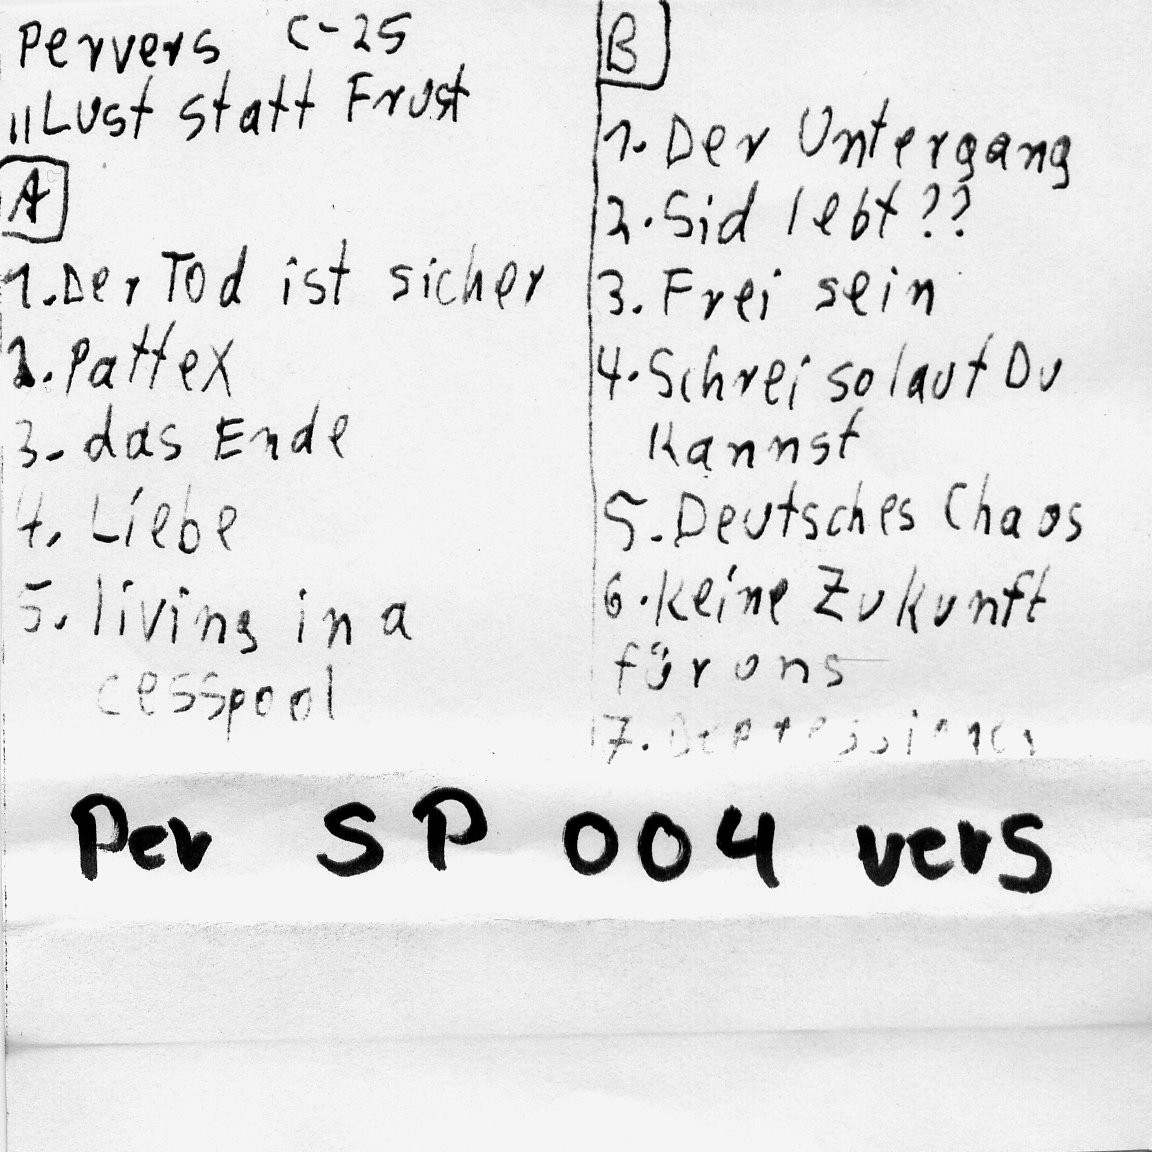 Pervers C-25
"Lust statt Frust
A
1. Der Tod ist sicher
2. Pattex
3. das Ende
4. Liebe
5. living in a
cesspool
B
1. Der Untergang
2. Sid lebt??
3. Frei sein
4. Schrei so laut Du
Kannst
5. Deutsches Chaos
6. Keine Zukunft
für uns
7.
Per SP 004 vers